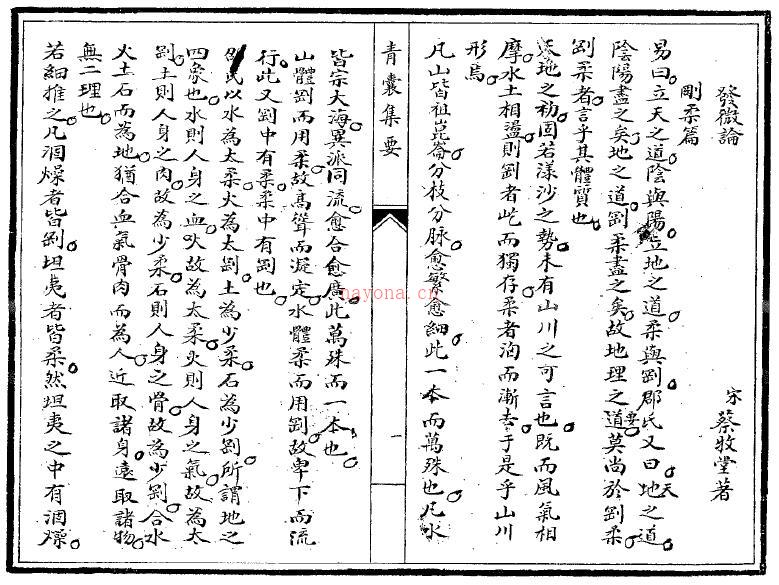 發微論
宋 蔡牧堂著
剛柔篇
易曰立天之道陰與陽立地之道柔與剛邵氏又曰天地之道
陰陽盡之矣地之道剛柔盡之矣故地理之道要莫尚於剛柔
剛柔者言乎其體質也
天地之初固若漾沙之勢未有山川之可言也既而風氣相
摩水土相盪則剛者屹而獨存柔者淘而漸去于是乎山川
形焉
凡山皆祖崑崙分枝分脉愈繁愈細此一本而萬殊也凡水
青囊集要
一
皆宗大海異派同流愈合愈廣此萬殊而一本也
山體剛而用柔故高聳而凝定水體柔而用剛故卑下而流
行此又剛中有柔柔中有剛也
邵氏以水為太柔火為太剛土為少柔石為少剛所謂地之
四象也水則人身之血故為太柔火則人身之氣故為太
剛土則人身之肉故為少柔石則人身之骨故為少剛合水
火土石而為地猶合血氣骨肉而為人近取諸身遠取諸物
無二理也
若細推之凡涸燥者皆剛坦夷者皆柔然坦夷之中有涸燥
nayona.cn